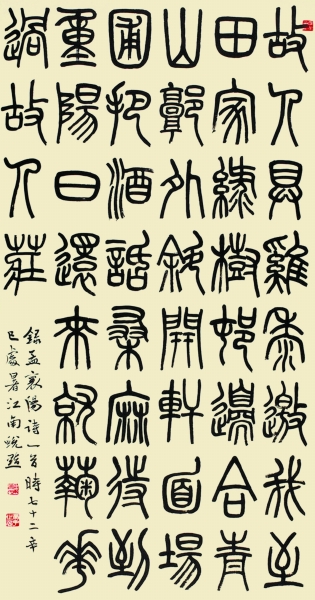 故人具雞黍邀我至
田家綠樹邨邊合青
山郭外斜開軒面場
圃把酒話桑麻待到
重陽日還來就菊花
過故人莊
錄孟襄陽詩一首時七十二辛
巳處暑江南